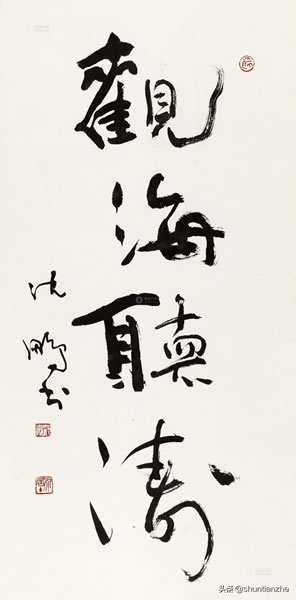 觀海聽濤
沈鵬书
头条@shuntianzhe